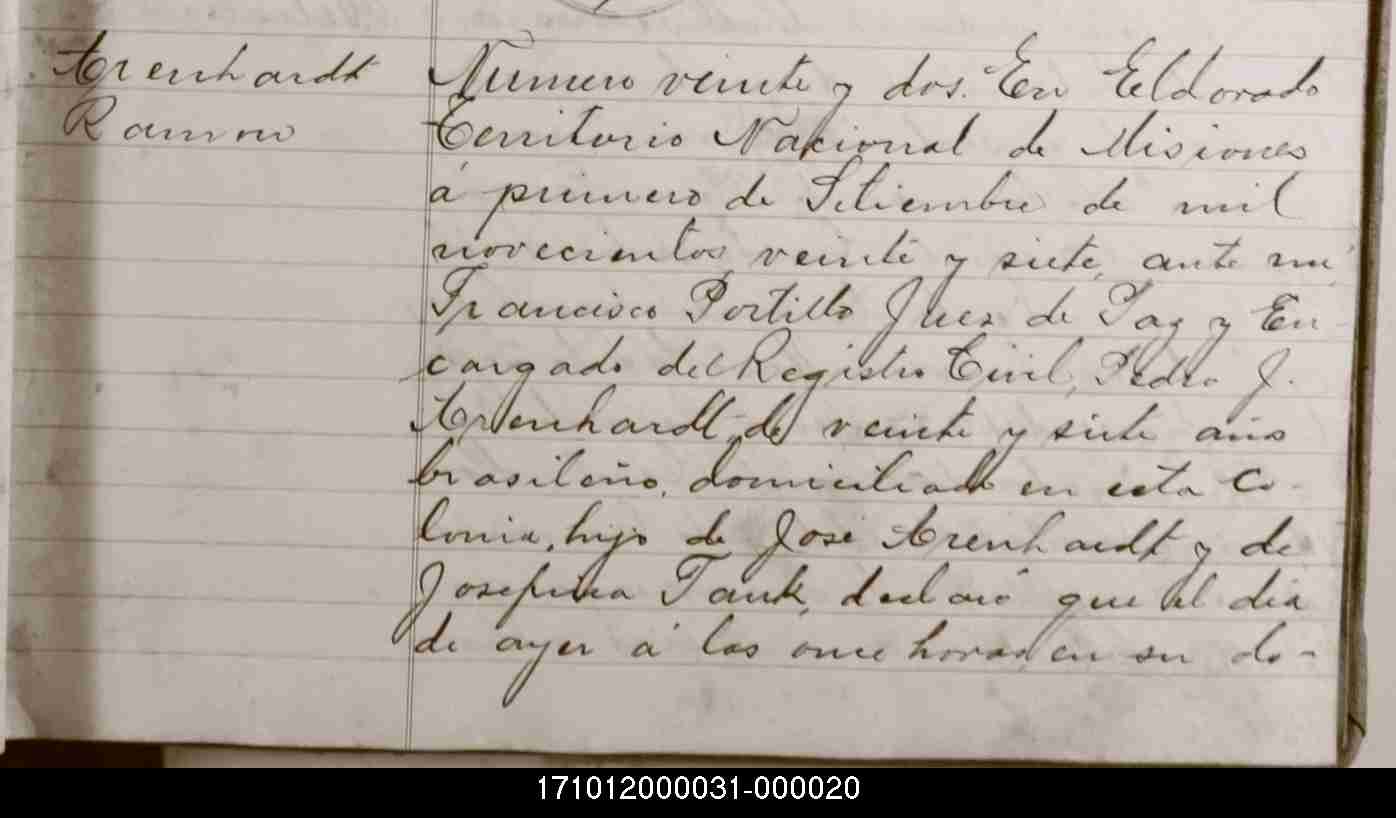 Arenhardt
Ramon
Número veinte y dos. En Eldorado
Territorio Nacional de Misiones
á primero de Setiembre de mil
novecientos veinte y siete, ante mi
Francisco Portillo Juez de Paz y En-
cargado del Registro Civil, Pedro J.
Arenhardt, de veinte y siete años
brasileño, domiciliado en esta Co-
lonia, hijo de José Arenhardt y de
Josefina Tank, declaró que el dia
de ayer á las once horas, en su do-
171012000031-000020